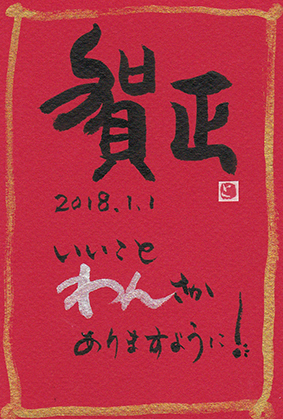 賀正
2018.1.1
いいこと
わんさか
ありますように!